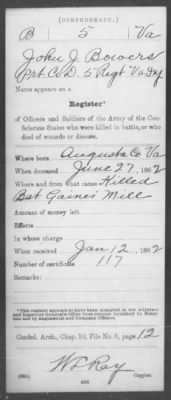 (CONFEDERATE.)
B 5 Va
John J. Bowers
Pvt Co. D. 5 Regt Va Inf
Name appears on a
Register*
of Officers and Soldiers of the Army of the Confederate States who were killed in battle, or who
died of wounds or disease.
Where born Augusta Co Va
When deceased June 27, 1862
Where and from what cause Killed
Bat Gaines Mill
Amount of money left
Effects
In whose charge
When received Jan 12, 1862
Number of certificate 117
Remarks:
Confed. Arch., Chap. 10, File No. 8, page 12
W S Ray
Copyist.